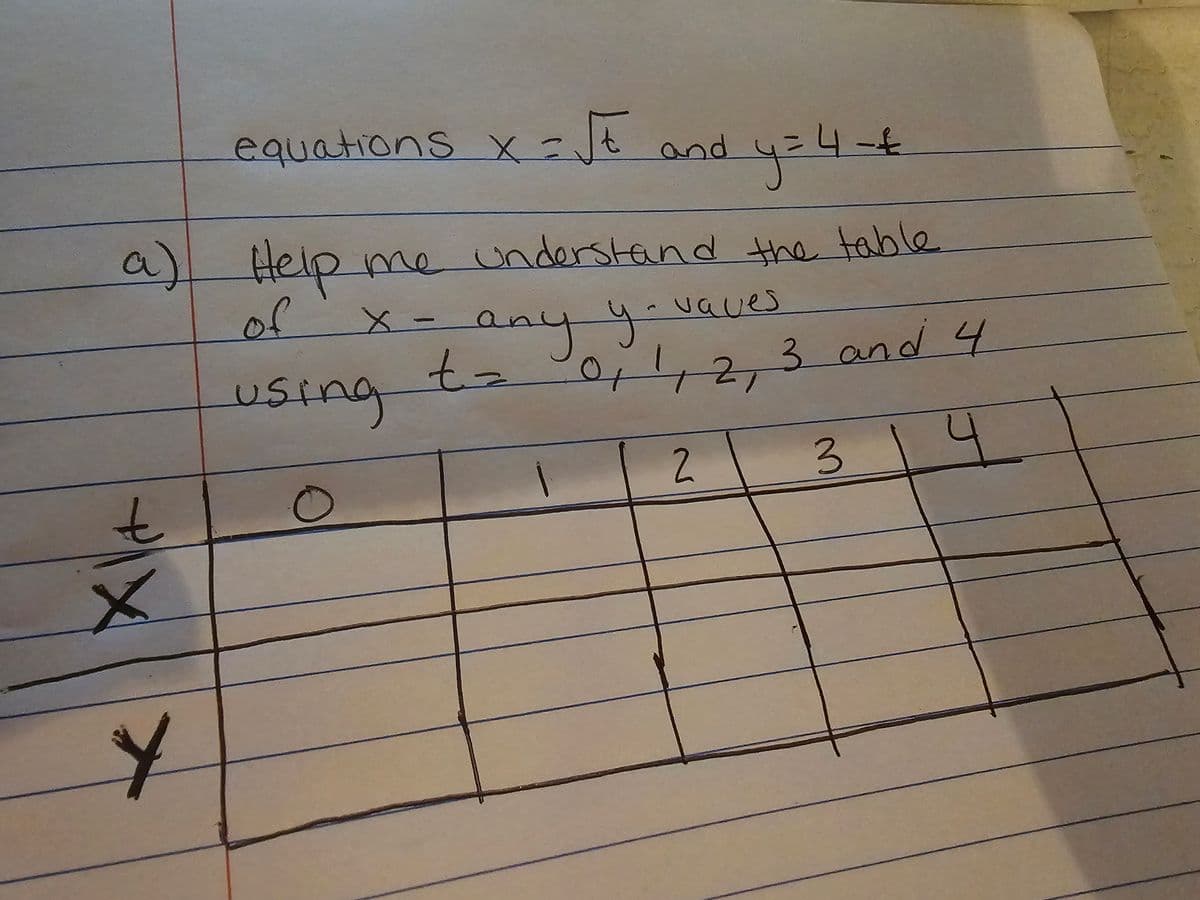 equations x = √t and y = 4 - t
a) Help me understand the table
of x - any y - vaues
using t = 0, 1, 2, 3 and 4
t 0 1 2 3 4
X
Y